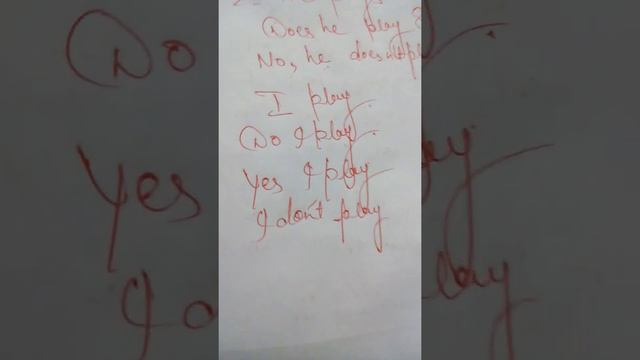 Does he play ?
No, he doesn't pl
I play.
Do I play.
Yes I play
I don't play